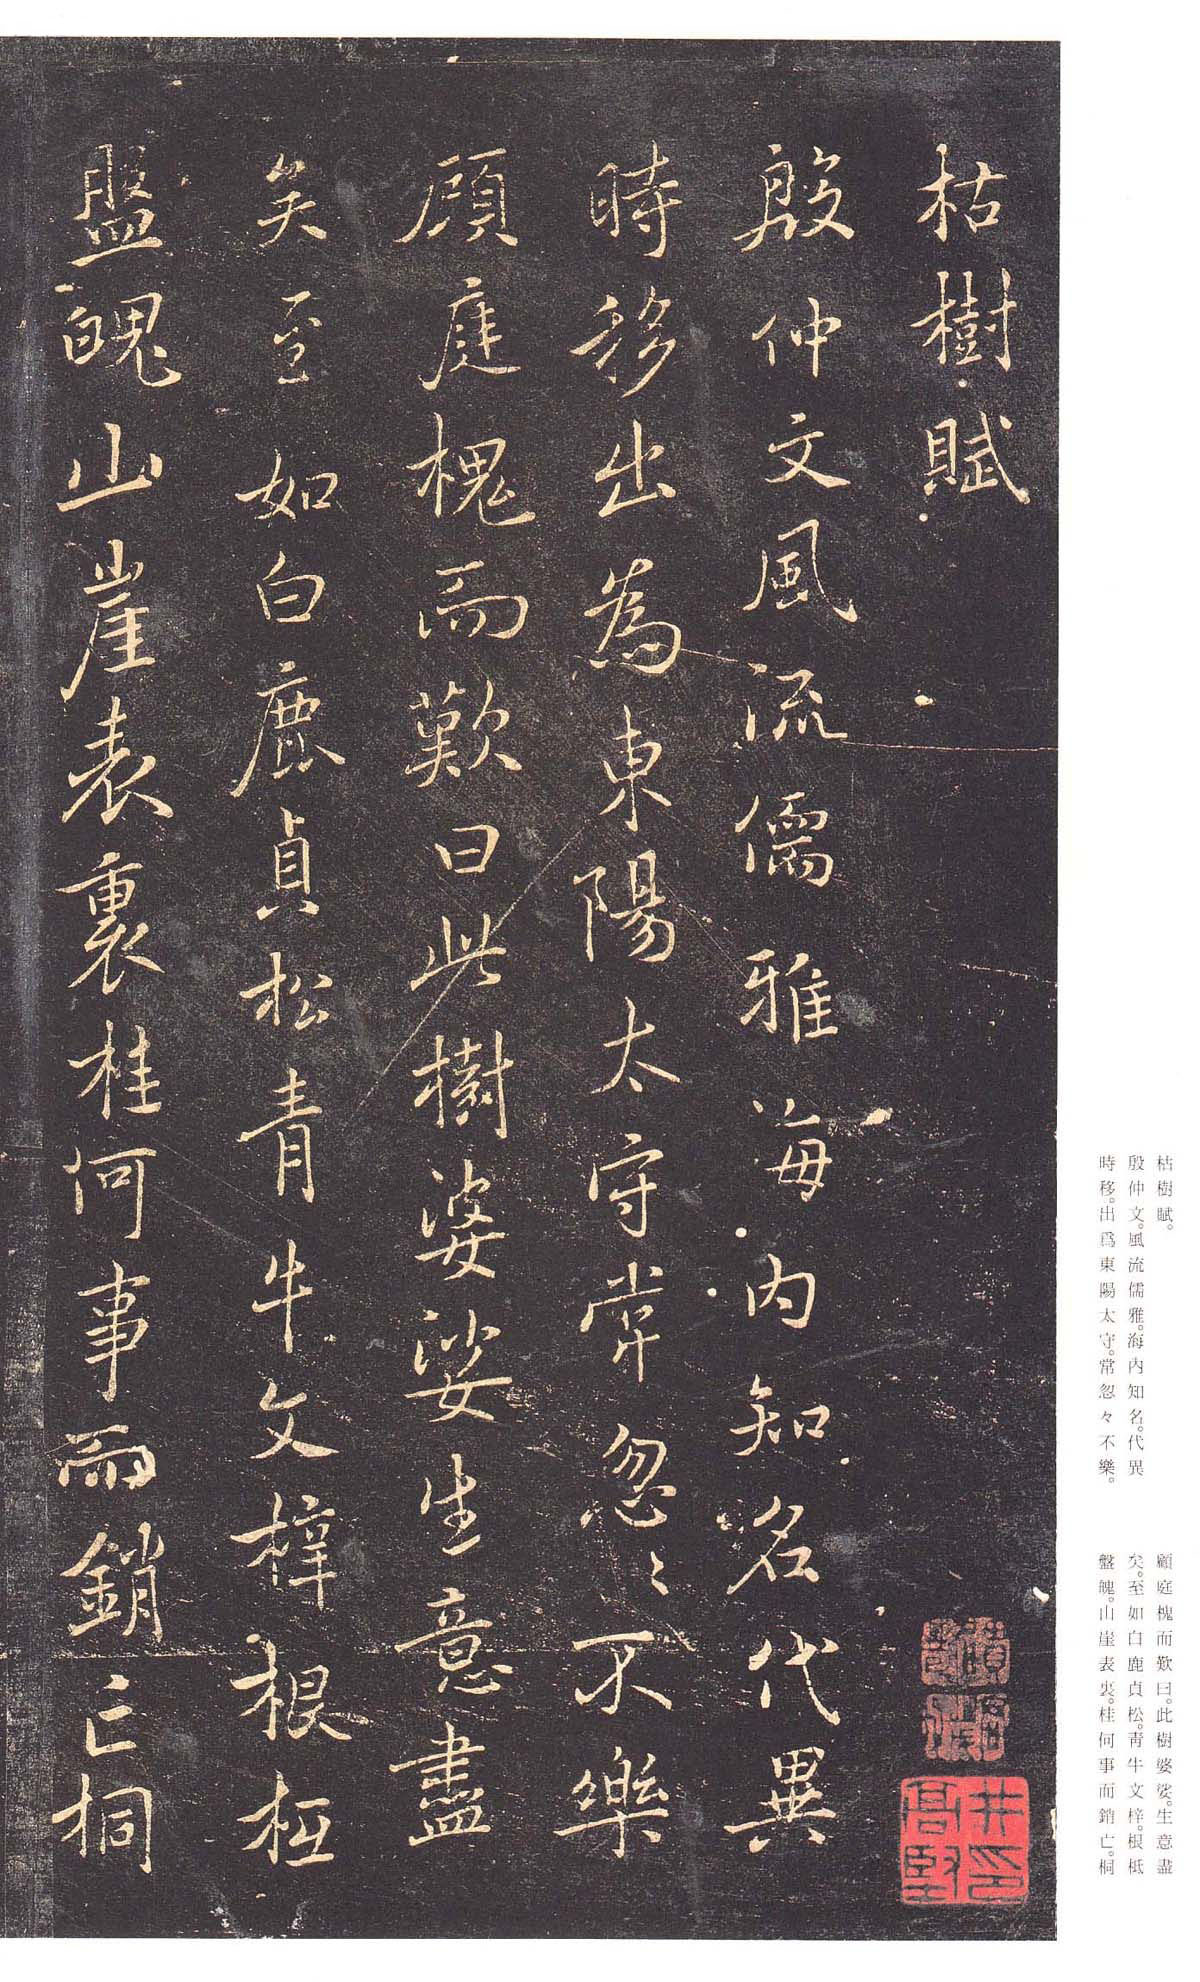 枯樹賦
殷仲文風流儒雅海内知名代異
時移出為東陽太守常忽〻不樂
顧庭槐而歎曰此樹婆娑生意盡
矣至如白鹿貞松青牛文梓根柢
盤魄山崖表裏桂何事而銷亡桐
枯樹賦。
殷仲文。風流儒雅。海内知名。代異
時移。出爲東陽太守。常忽々不樂。
顧庭槐而歎曰。此樹婆娑。生意盡
矣。至如白鹿貞松。靑牛文梓。根柢
盤魄。山崖表裏。桂何事而銷亡。桐